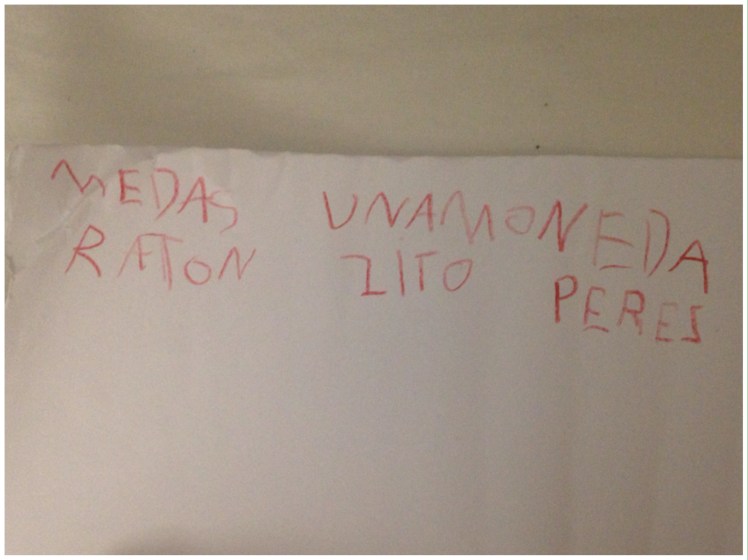 MEDAS UNAMONEDA
RATON ZITO PERES